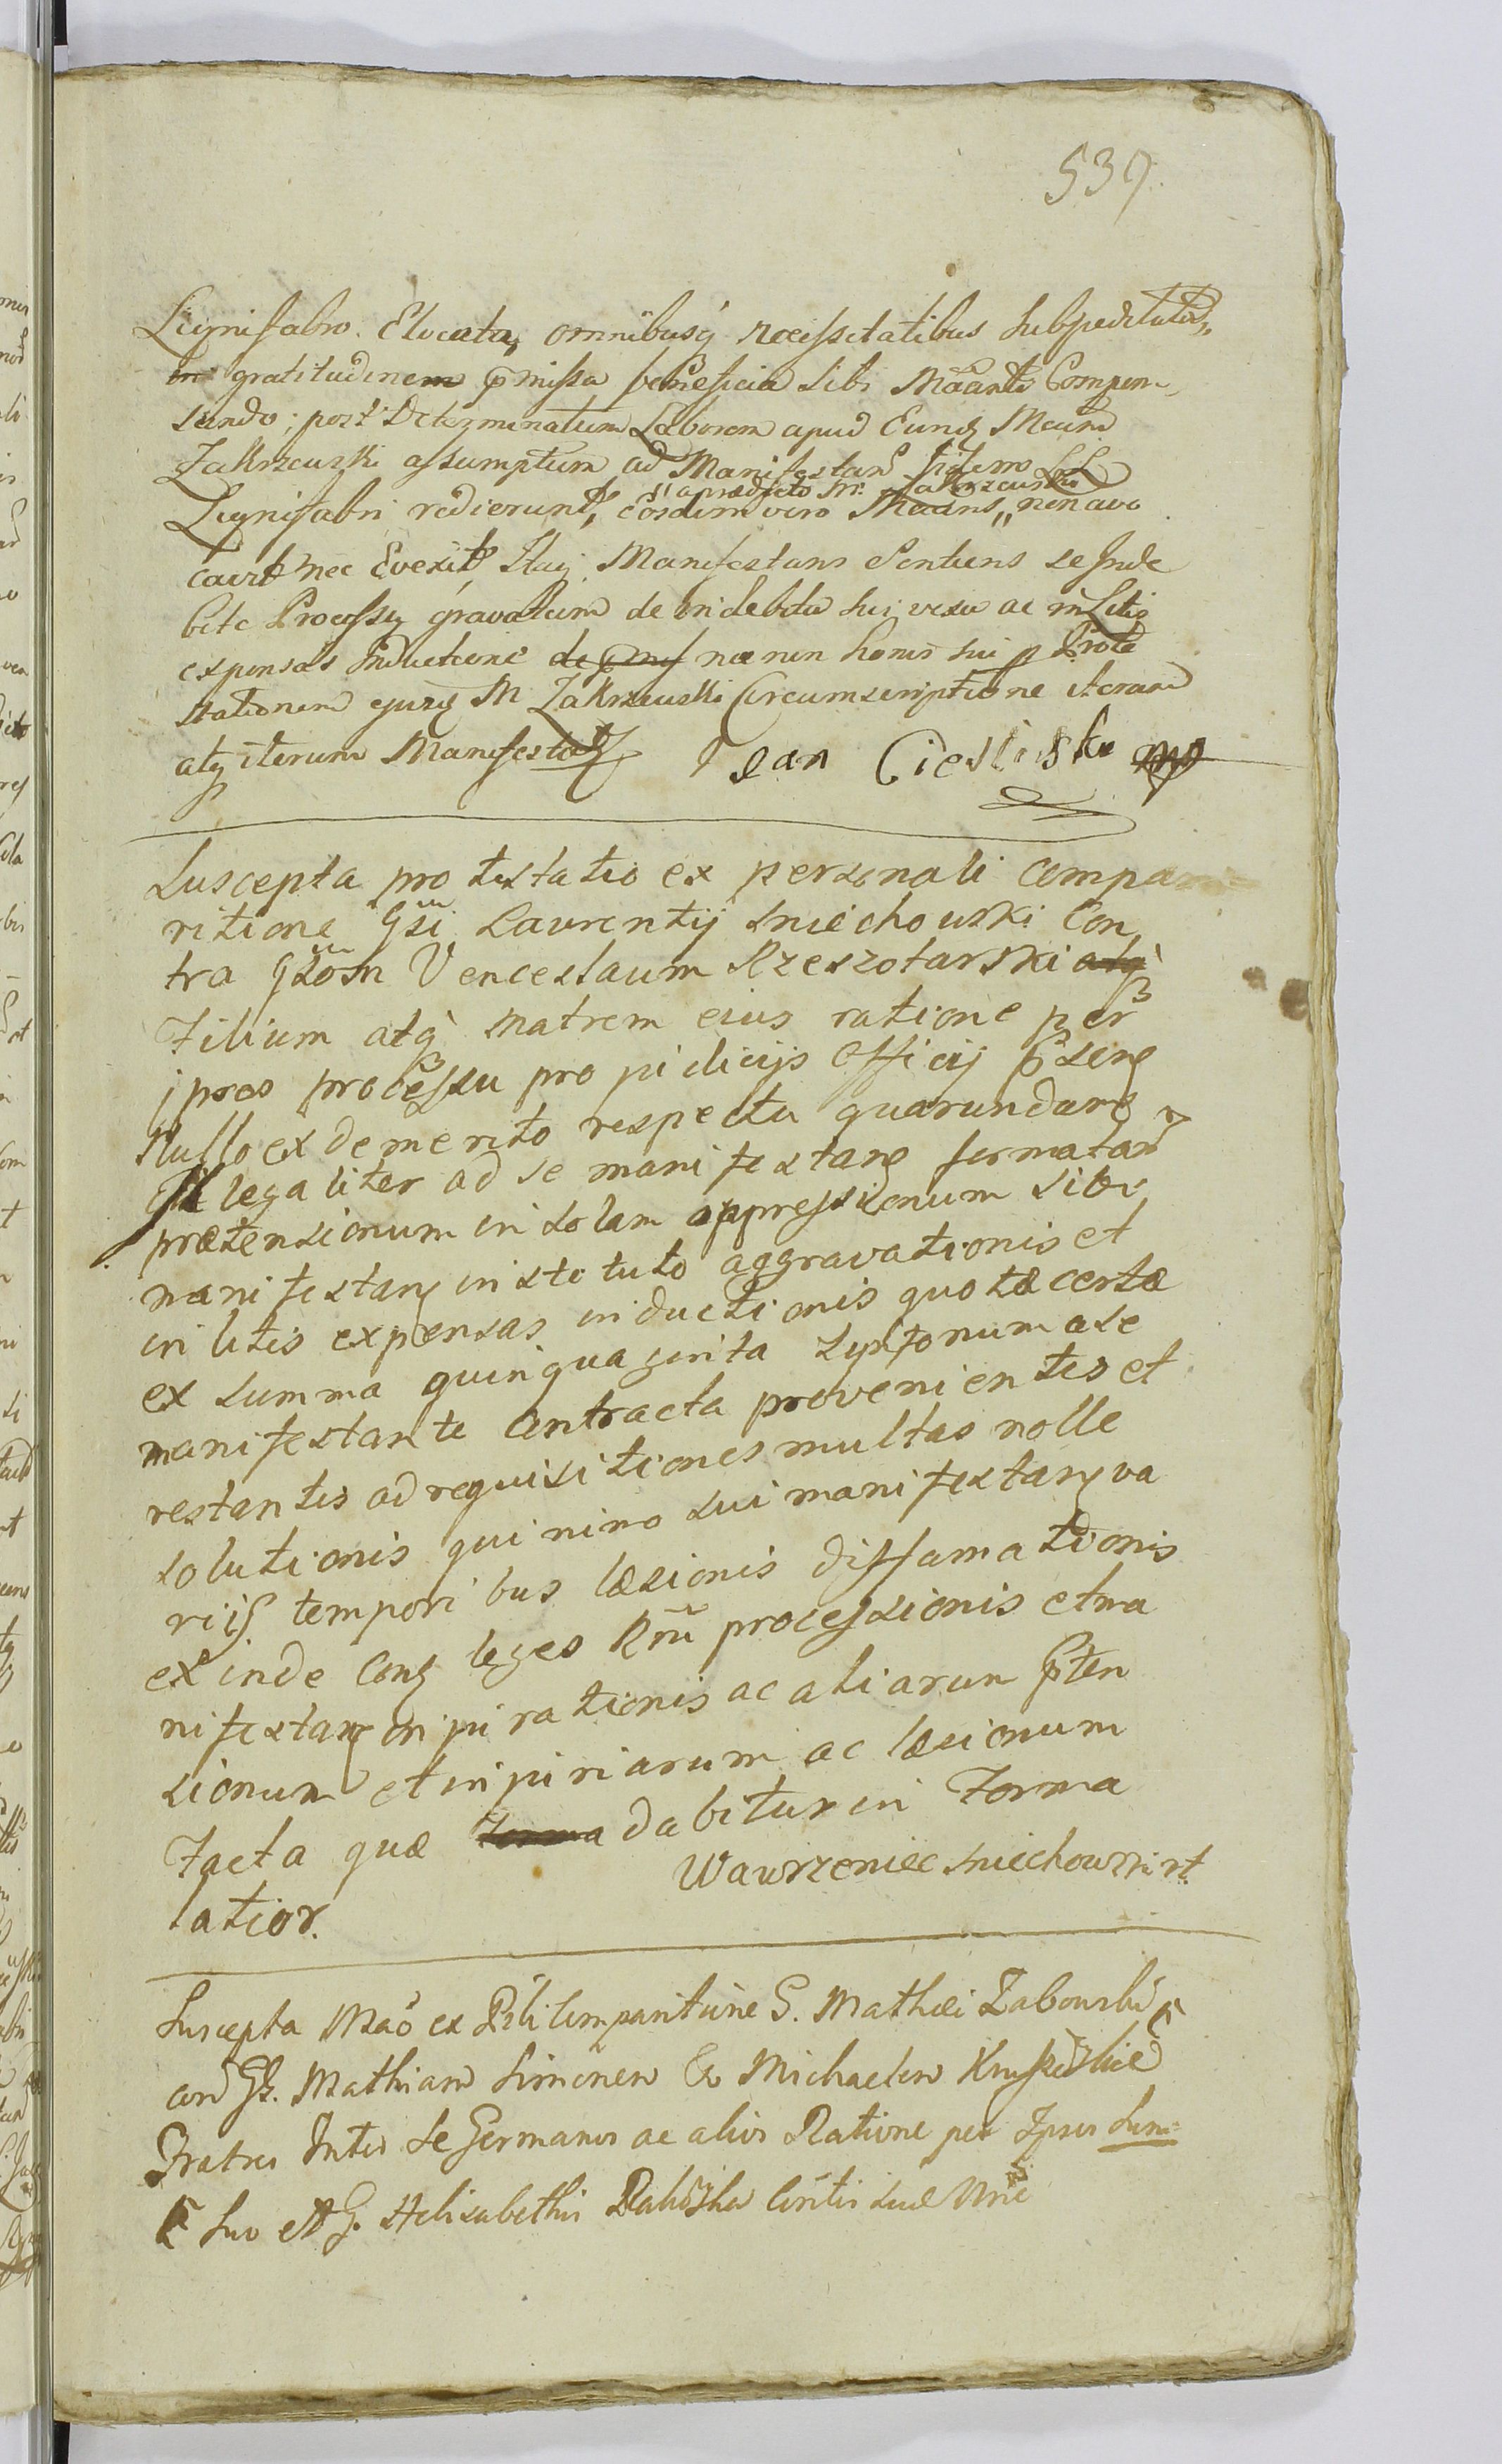 539.
Lignifabro. Elocata, omnibusq necessitatibus subpeditatis,,
in gratitudinem pmissa beneficia sibi Maanti Compen„
sando; post Determinatum Laborem apud Eundq Mcum
Zakrzewski assumptum ad Manifestan
a prædicto M. Zakrzewski
Lignifabri redierunt, eosdem vero Maans,, non avo
cavit nec Evexit, Itaq Manifestans Sentiens se Inde
bite Processu gravatum de indebita sui vexa ac in Litis
expensas Inductione nec non honoris sui p Prote
stationem ejusq M Zakrzewski Circumscriptione iterum
atq iterum Manifestat Jan Cieslinski mp
Suscepta protestatio ex personali compa
ritione Gsi Laurentij Sniechowski Con
tra Gsosn Venceslaum Rzeszotarski atq
Filium atq Matrem eius ratione per
ipsos processu pro judicijs Officij Psens
Nullo ex demerito respectu quarundam
Illegaliter ad se manifestans formatarum
prætensionum in solam oppressionum sibi
manifestans instituto aggravationis et
in litis expensas inductionis quotæ certæ
ex summa quinquaginta Tynfonum a se
manifestante contracta provenientis et
restantis ad requisitiones multas nolle
solutionis quinimo sui manifestans va
riis temporibus læsionis diffamationis
exinde Conq leges Rni processionis et ma
nifestans injurationis ac aliarum Pten
sionum et injuriarum ac læsionum
Facta quæ forma dabitur in Forma
Wawrzeniec Sniechowski
latior.
Suscepta Mao ex Psli Comparitione G. Mathæi Zabowski
con Gs. Mathiam Simonem & Michaelem
Fratres Inter se Germanos ac alios Ratione per Ipsos Sum
Suo et G. Helisabethis